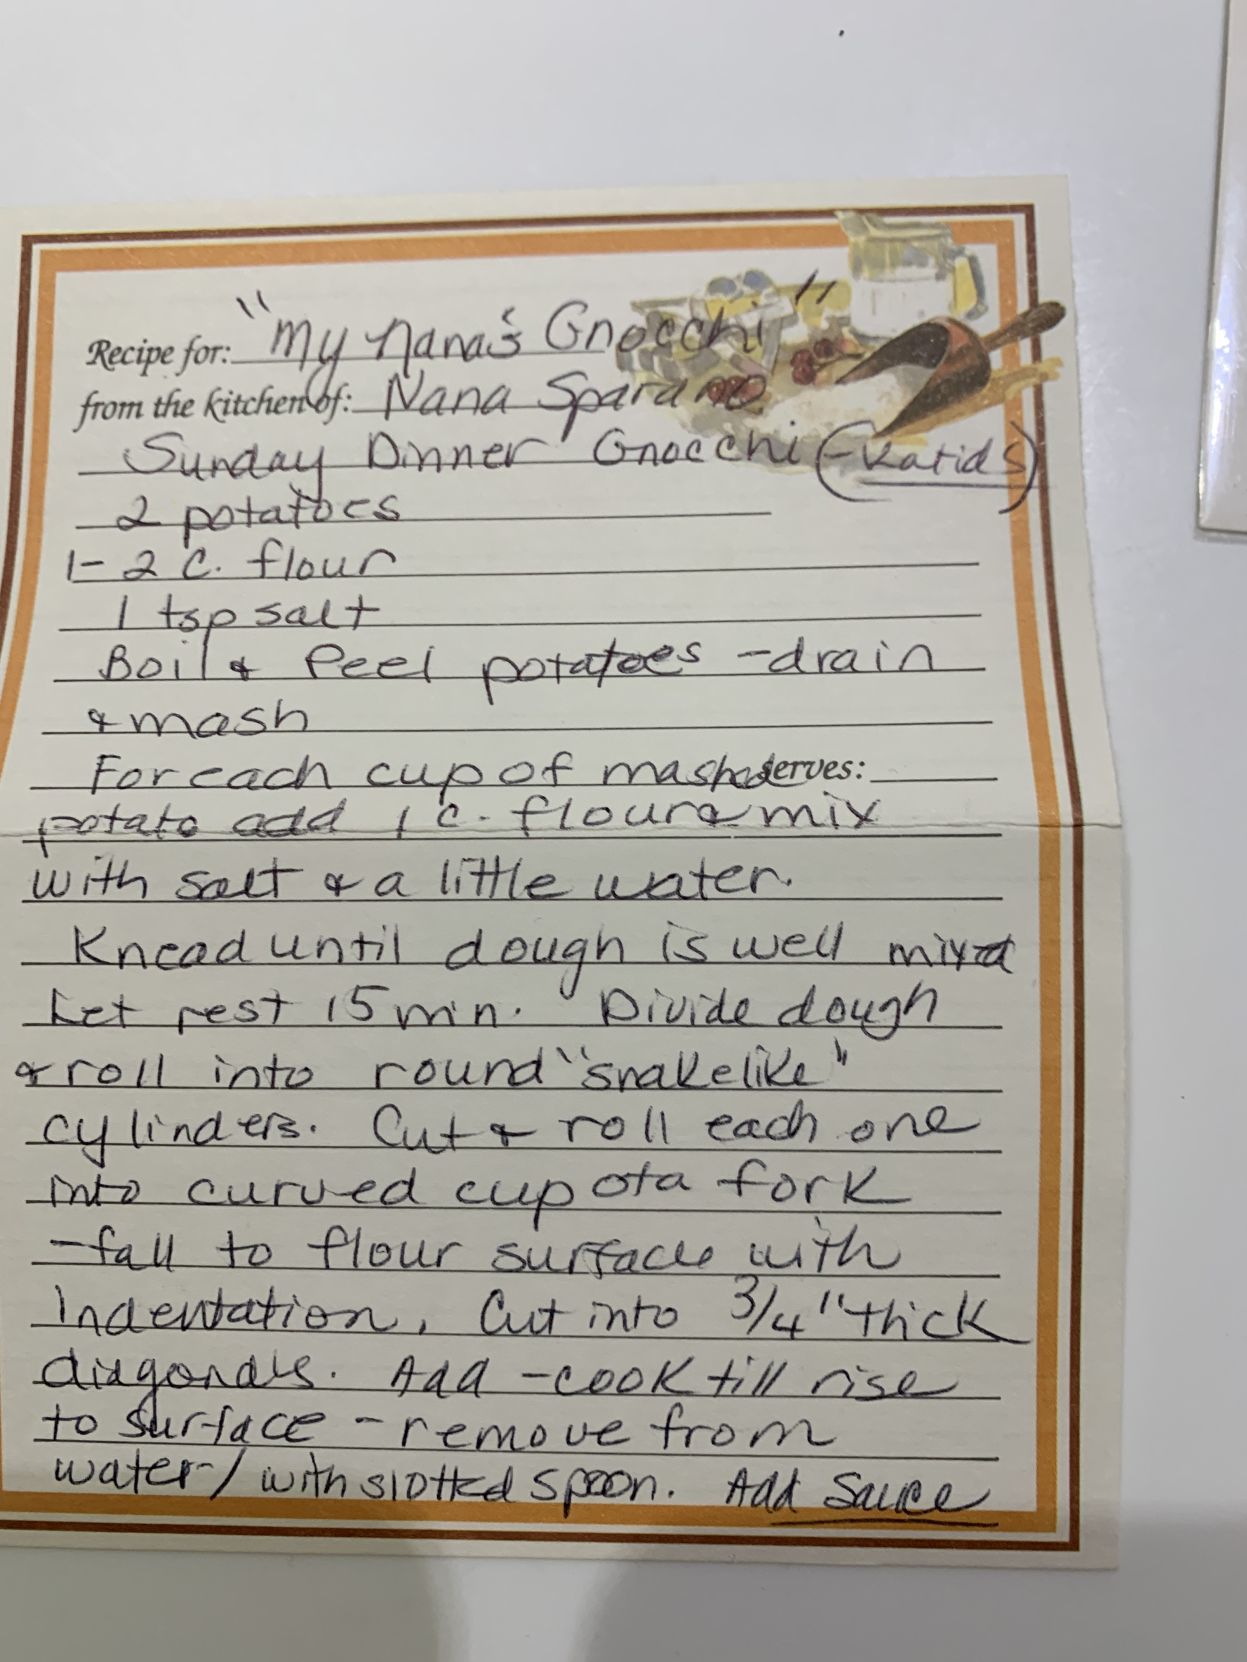 Recipe for: "My Nana's Gnocchi"
from the kitchen of: Nana Sparano
Sunday Dinner Gnocchi (-Katids)
2 potatoes
1-2 c. flour
1 tsp salt
Boil & Peel potatoes - drain
& mash
For each cup of mashed serves:
potato add 1 c. flour & mix
with salt & a little water.
Knead until dough is well mixed
Let rest 15 min. Divide dough
& roll into round "snakelike"
cylinders. Cut & roll each one
into curved cup of a fork
- fall to flour surface with
Indentation. Cut into 3/4" thick
diagonals. Add - cook till rise
to surface - remove from
water / with slotted spoon. Add Sauce